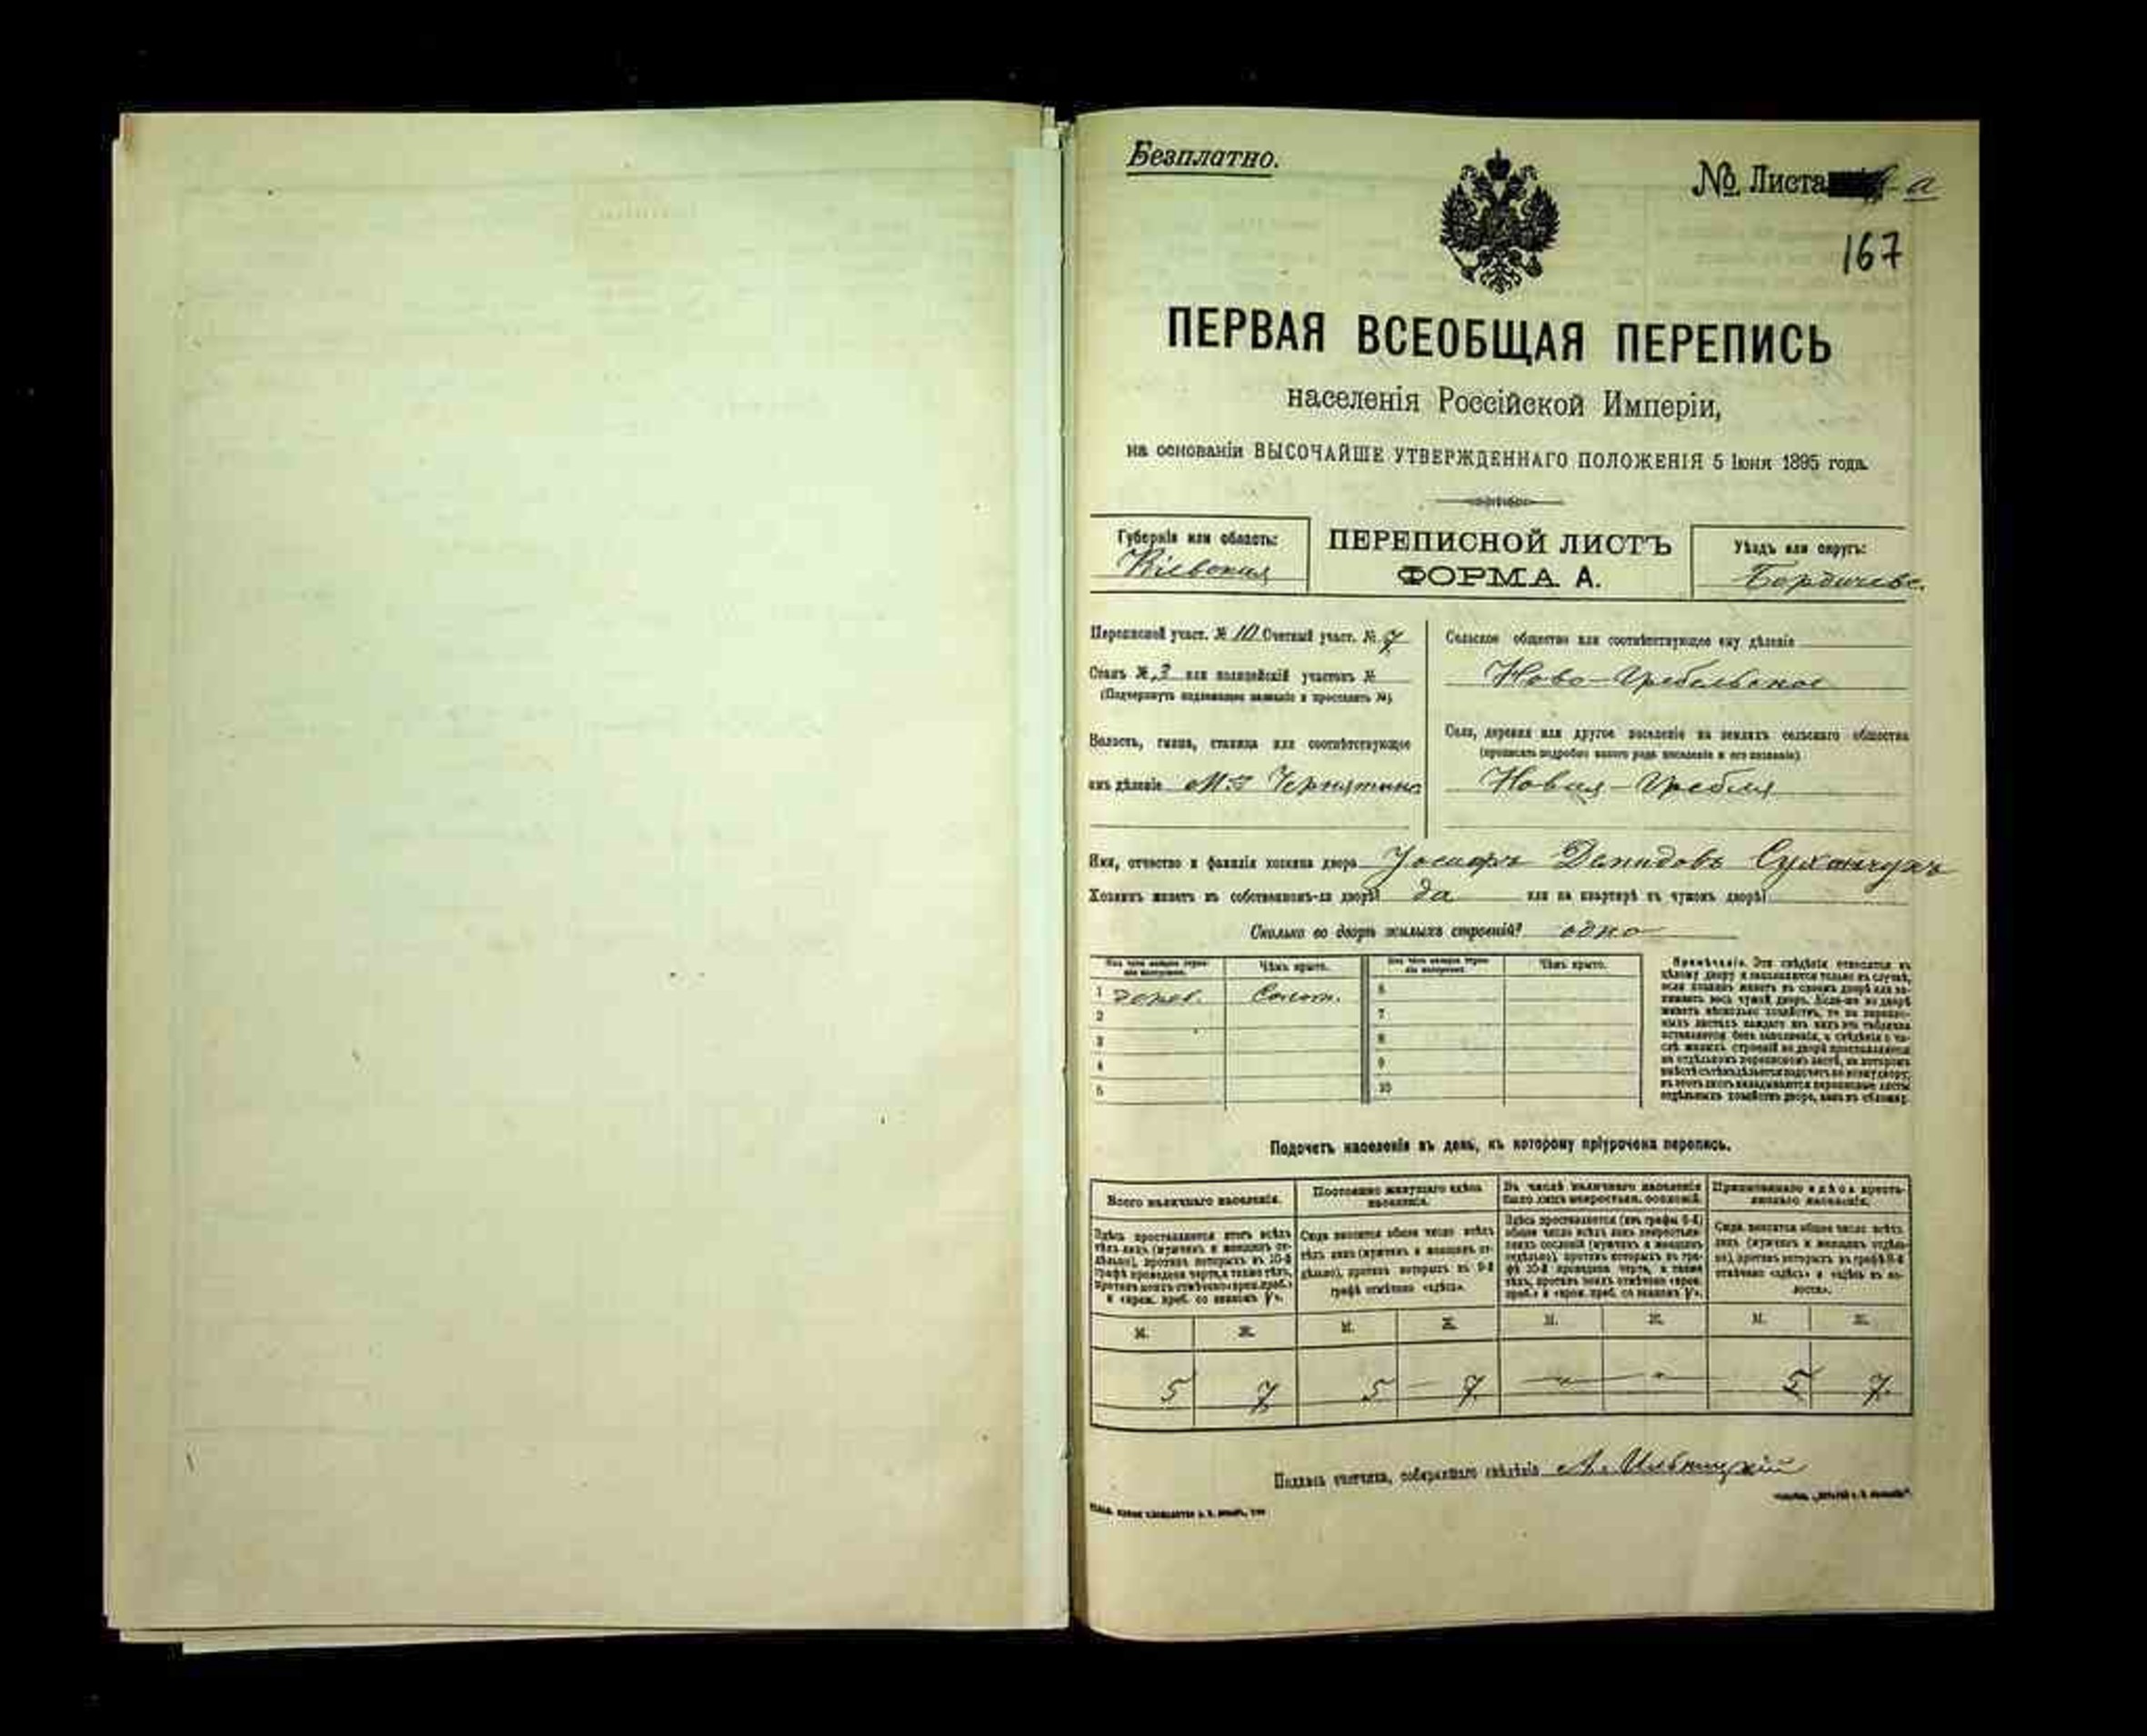 Безплатно.
№ Листа а
167
ПЕРВАЯ ВСЕОБЩАЯ ПЕРЕПИСЬ
населенія Россійской Имперіи,
на основаніи ВЫСОЧАЙШЕ УТВЕРЖДЕННАГО ПОЛОЖЕНІЯ 5 Іюня 1895 года.
Губернія или область:
Кіевская
ПЕРЕПИСНОЙ ЛИСТЪ
ФОРМА А.
Уѣздъ или округъ:
Бердичевс.
Переписной участ. № 10 Счетный участ. № 7
Станъ № 3 или полицейскій участокъ №
(Подчеркнуть надлежащее названіе и проставить №)
Волость, гмина, станица или соотвѣтствующее
имъ дѣленіе Чернятинс
Сельское общество или соотвѣтствующее ему дѣленіе
Ново-Гребельское
Село, деревня или другое поселеніе на земляхъ сельскаго общества
(прописать подробно какого рода поселеніе и его названіе)
Новая-Гребля
Имя, отчество и фамилія хозяина двора Іосифъ Демидовъ
Хозяинъ живетъ въ собственномъ-ли дворѣ? да или на квартирѣ въ чужомъ дворѣ?
Сколько во дворѣ жилыхъ строеній? одно
Изъ чего каждое строеніе построено. Чѣмъ крыто. Изъ чего каждое строеніе построено. Чѣмъ крыто.
1 дерев. Солом. 6
2 7
3 8
4 9
5 10
Примѣчаніе. Эти свѣдѣнія относятся къ
цѣлому двору и заполняются только въ случаѣ,
если хозяинъ живетъ въ своемъ дворѣ или за-
нимаетъ весь чужой дворъ. Если-же во дворѣ
живетъ нѣсколько хозяйствъ, то на перепис-
ныхъ листахъ каждаго изъ нихъ эта табличка
оставляется безъ заполненія, а свѣдѣнія о чи-
слѣ жилыхъ строеній во дворѣ проставляются
на отдѣльномъ переписномъ листѣ, на которомъ
вмѣстѣ съ тѣмъ дѣлается подсчетъ по всему двору;
въ этотъ листъ вкладываются переписные листы
отдѣльныхъ хозяйствъ двора, какъ въ обложку.
Подсчетъ населенія въ день, къ которому пріурочена перепись.
Всего наличнаго населенія.
Здѣсь проставляется итогъ всѣхъ
тѣхъ лицъ (мужчинъ и женщинъ от-
дѣльно), противъ которыхъ въ 10-й
графѣ проведена черта, а также тѣхъ,
противъ коихъ отмѣчено «врем. преб.»
и «врем. преб. со знакомъ V».
Постоянно живущаго здѣсь
населенія.
Сюда вносится общее число всѣхъ
тѣхъ лицъ (мужчинъ и женщинъ от-
дѣльно), противъ которыхъ въ 9-й
графѣ отмѣчено «здѣсь».
Въ числѣ наличнаго населенія
было лицъ некрестьян. сословій.
Здѣсь проставляется (изъ графы 4-й)
общее число всѣхъ лицъ некрестьян-
скихъ сословій (мужчинъ и женщинъ
отдѣльно), противъ которыхъ въ гра-
фѣ 10-й проведена черта, а также
тѣхъ, противъ коихъ отмѣчено «врем.
преб.» и «врем. преб. со знакомъ V».
Приписаннаго здѣсь кресть-
янскаго населенія.
Сюда вносится общее число всѣхъ
лицъ (мужчинъ и женщинъ отдѣль-
но), противъ которыхъ въ графѣ 8-й
отмѣчено «здѣсь» и «здѣсь въ во-
лости».
М. Ж. М. Ж. М. Ж. М. Ж.
5 7 5 7 5 7
Подпись счетчика, собиравшаго свѣдѣнія